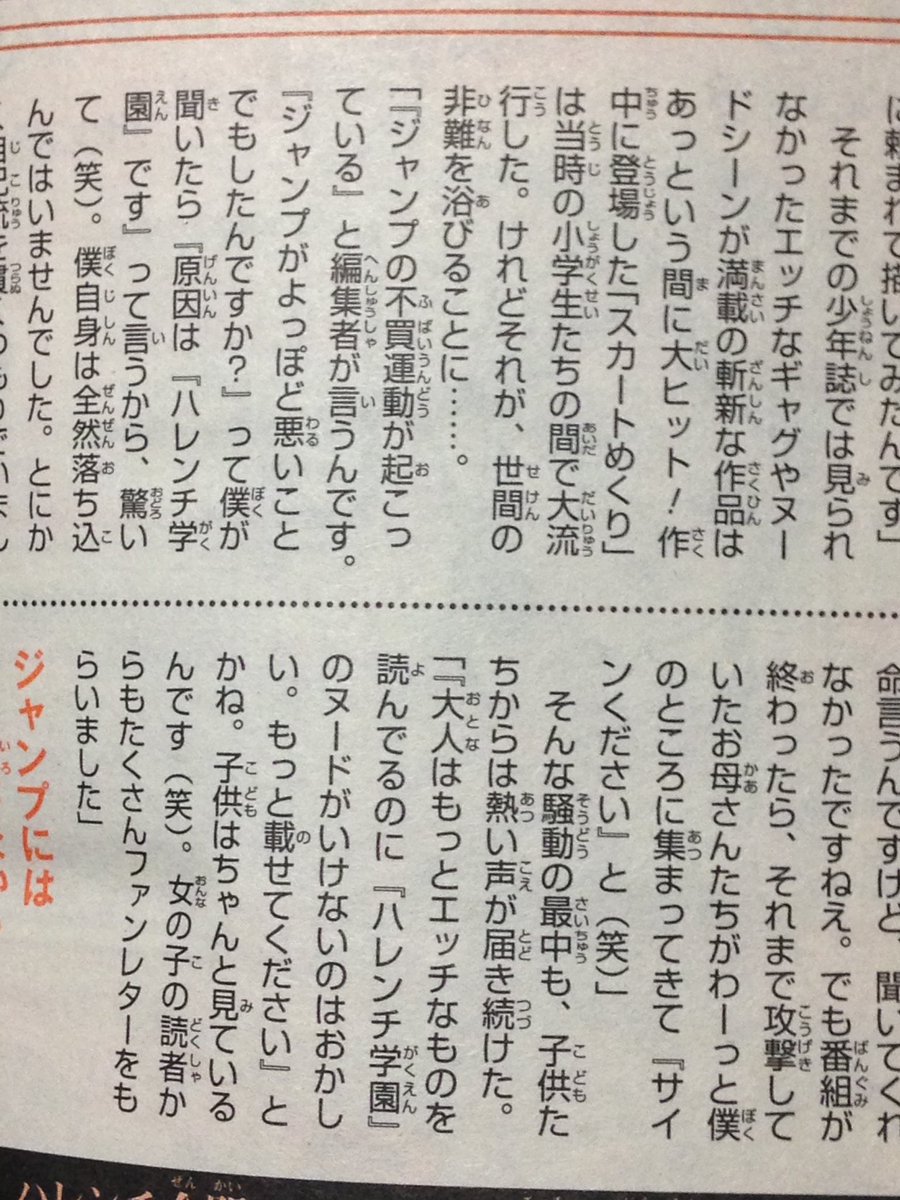 に頼まれて描いてみたんです」
それまでの少年誌では見られ
なかったエッチなギャグやヌー
ドシーンが満載の斬新な作品は
あっという間に大ヒット！作
中に登場した「スカートめくり」
は当時の小学生たちの間で大流
行した。けれどそれが、世間の
非難を浴びることに……。
「『ジャンプの不買運動が起こっ
ている』と編集者が言うんです。
『ジャンプがよっぽど悪いこと
でもしたんですか？』って僕が
聞いたら『原因は『ハレンチ学
園』です』って言うから、驚い
て（笑）。僕自身は全然落ち込
んではいませんでした。とにか
く自己流を貫
命言うんですけど、聞いてくれ
なかったですねえ。でも番組が
終わったら、それまで攻撃して
いたお母さんたちがわーっと僕
のところに集まってきて『サイ
ンください』と（笑）」
そんな騒動の最中も、子供た
ちからは熱い声が届き続けた。
「『大人はもっとエッチなものを
読んでるのに『ハレンチ学園』
のヌードがいけないのはおかし
い。もっと載せてください』と
かね。子供はちゃんと見ている
んです（笑）。女の子の読者か
らもたくさんファンレターをも
らいました」
ジャンプには
ハレンチ